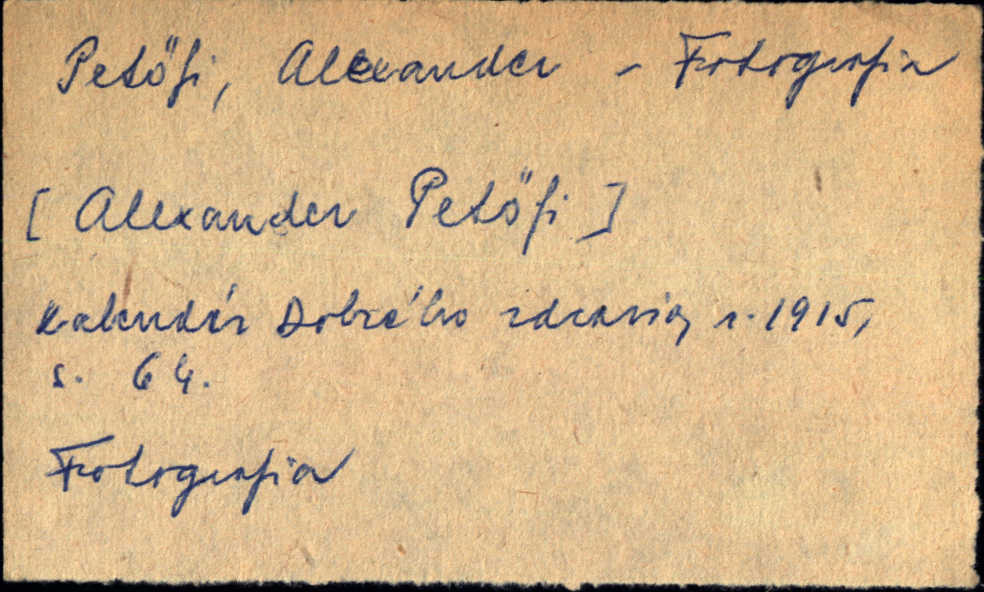 Petöfi, Alexander - Fotografia
[Alexander Petöfi]
Kalendár Dobrého zdravia, r. 1915,
s. 64.
Fotografia